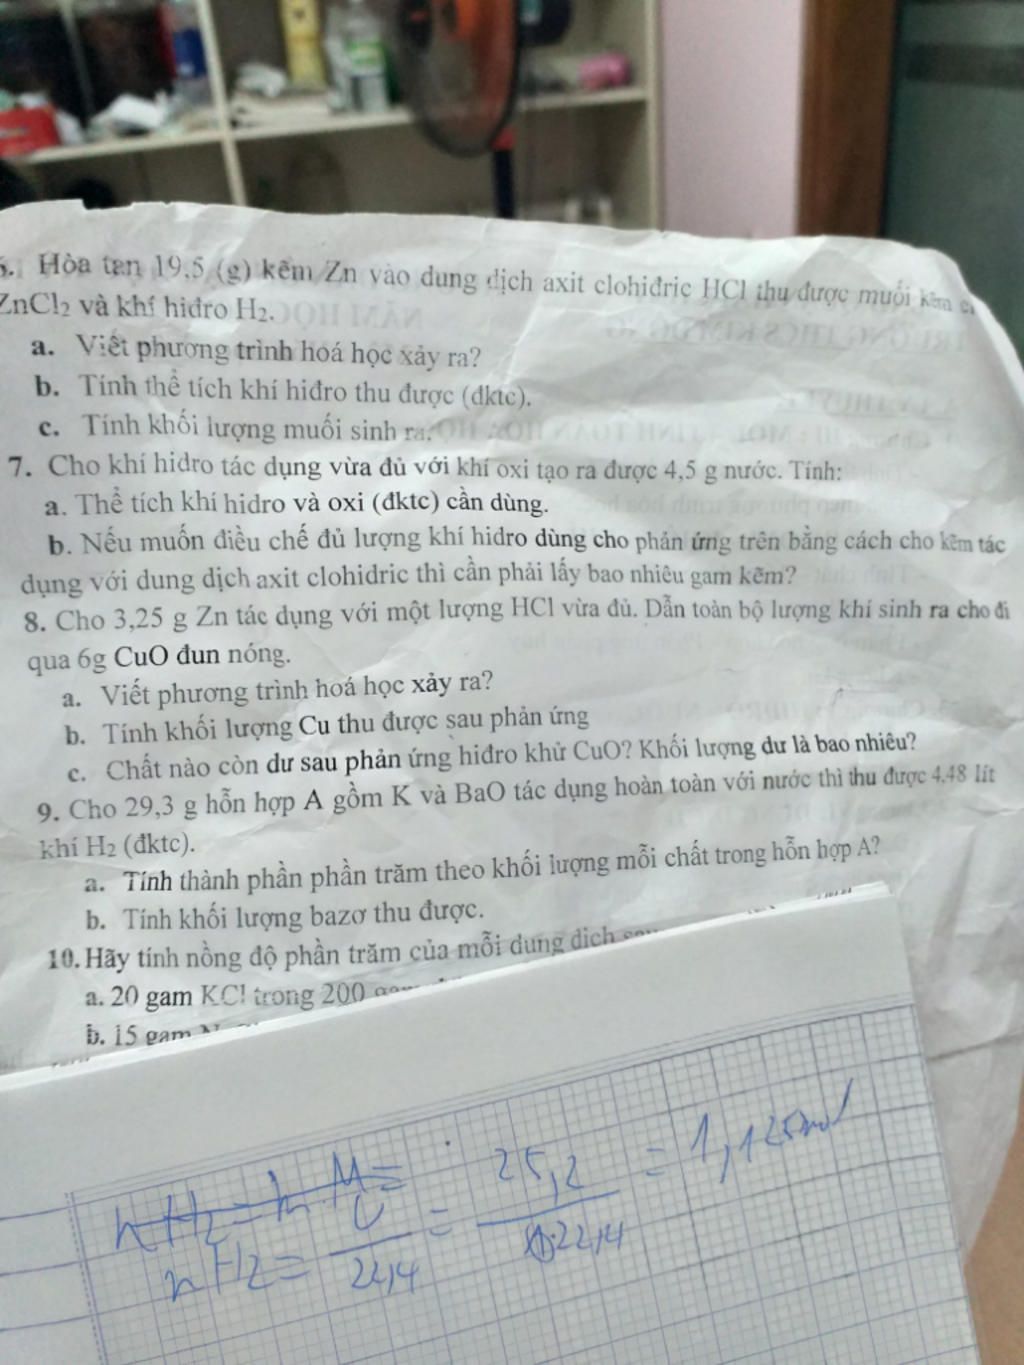 Hòa tan 19,5 (g) kẽm Zn vào dung dịch axit clohiđric HCl thu được muối kẽm
ZnCl₂ và khí hiđro H₂.
a. Viết phương trình hoá học xảy ra?
b. Tính thể tích khí hiđro thu được (đktc).
c. Tính khối lượng muối sinh ra.
7. Cho khí hidro tác dụng vừa đủ với khí oxi tạo ra được 4,5 g nước. Tính:
a. Thể tích khí hidro và oxi (đktc) cần dùng.
b. Nếu muốn điều chế đủ lượng khí hidro dùng cho phản ứng trên bằng cách cho kẽm tác
dụng với dung dịch axit clohidric thì cần phải lấy bao nhiêu gam kẽm?
8. Cho 3,25 g Zn tác dụng với một lượng HCl vừa đủ. Dẫn toàn bộ lượng khí sinh ra cho đi
qua 6g CuO đun nóng.
a. Viết phương trình hoá học xảy ra?
b. Tính khối lượng Cu thu được sau phản ứng
c. Chất nào còn dư sau phản ứng hiđro khử CuO? Khối lượng dư là bao nhiêu?
9. Cho 29,3 g hỗn hợp A gồm K và BaO tác dụng hoàn toàn với nước thì thu được 4,48 lít
khí H₂ (đktc).
a. Tính thành phần phần trăm theo khối lượng mỗi chất trong hỗn hợp A?
b. Tính khối lượng bazơ thu được.
10. Hãy tính nồng độ phần trăm của mỗi dung dịch
a. 20 gam KCl trong 200
b. 15 gam
nH₂ = V/22,4 = 25,2/22,4 = 1,125mol